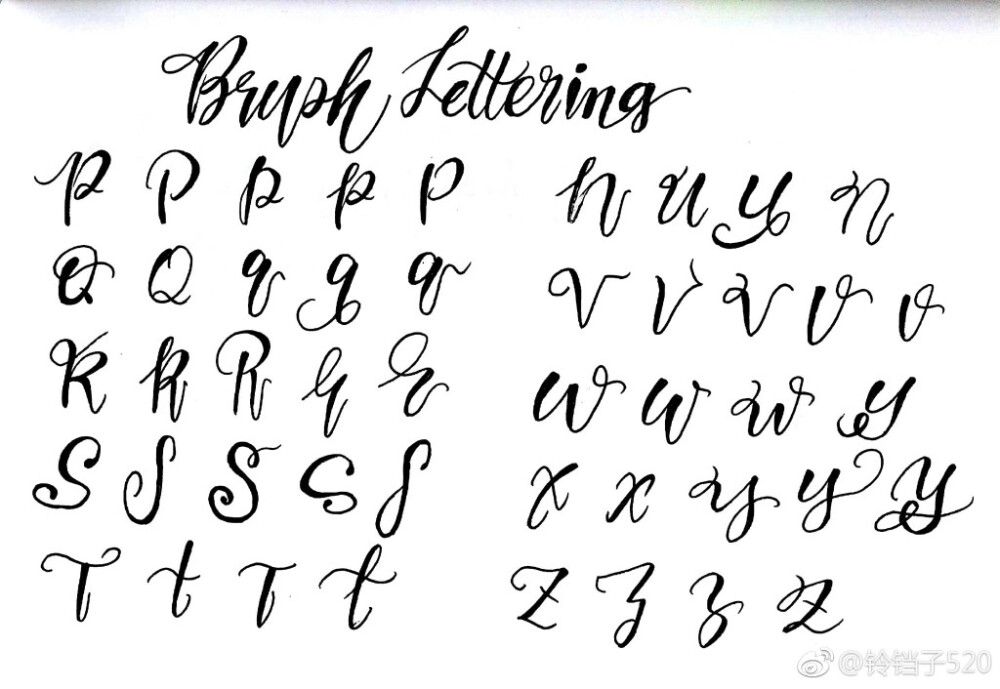 Brush Lettering
P P p p P
Q Q q q q
R R R r r
S S S S S
T t T t
n u y n
V V V v v
w w w y
x x y y y
Z z z z
@铃铛子520